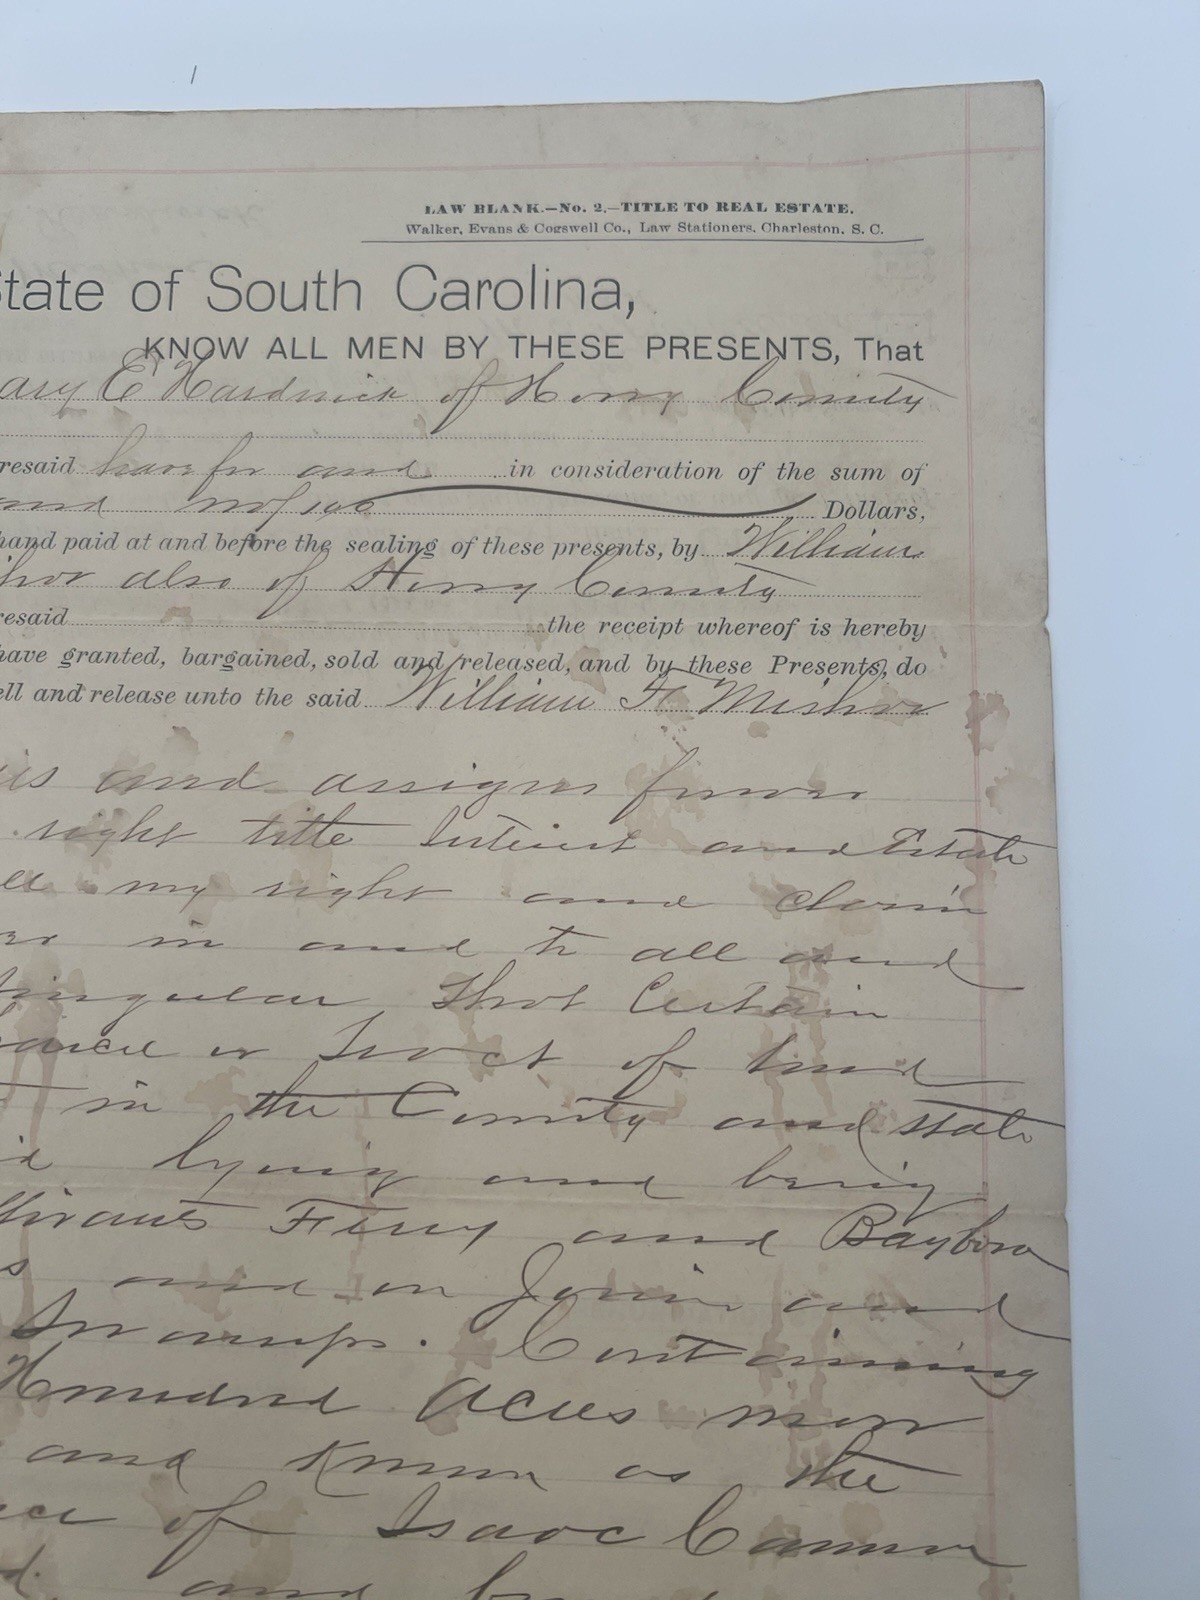 LAW BLANK.—No. 2.—TITLE TO REAL ESTATE.
Walker, Evans & Cogswell Co., Law Stationers, Charleston, S. C.
State of South Carolina,
KNOW ALL MEN BY THESE PRESENTS, That
ary E Hardwick of Horry County
resaid have for and in consideration of the sum of
and no/100 Dollars,
hand paid at and before the sealing of these presents, by William
also of Horry County
resaid the receipt whereof is hereby
have granted, bargained, sold and released, and by these Presents, do
ell and release unto the said William F Mishoe
and assigns forever
right title Interest and Estate
my right and claim
in and to all and
Singular that Certain
or Tract of land
in the County and State
lying and being
Ferry and Bayboro
and on and
Swamps. Containing
Hundred Acres more
and known as the
of Isaac
and